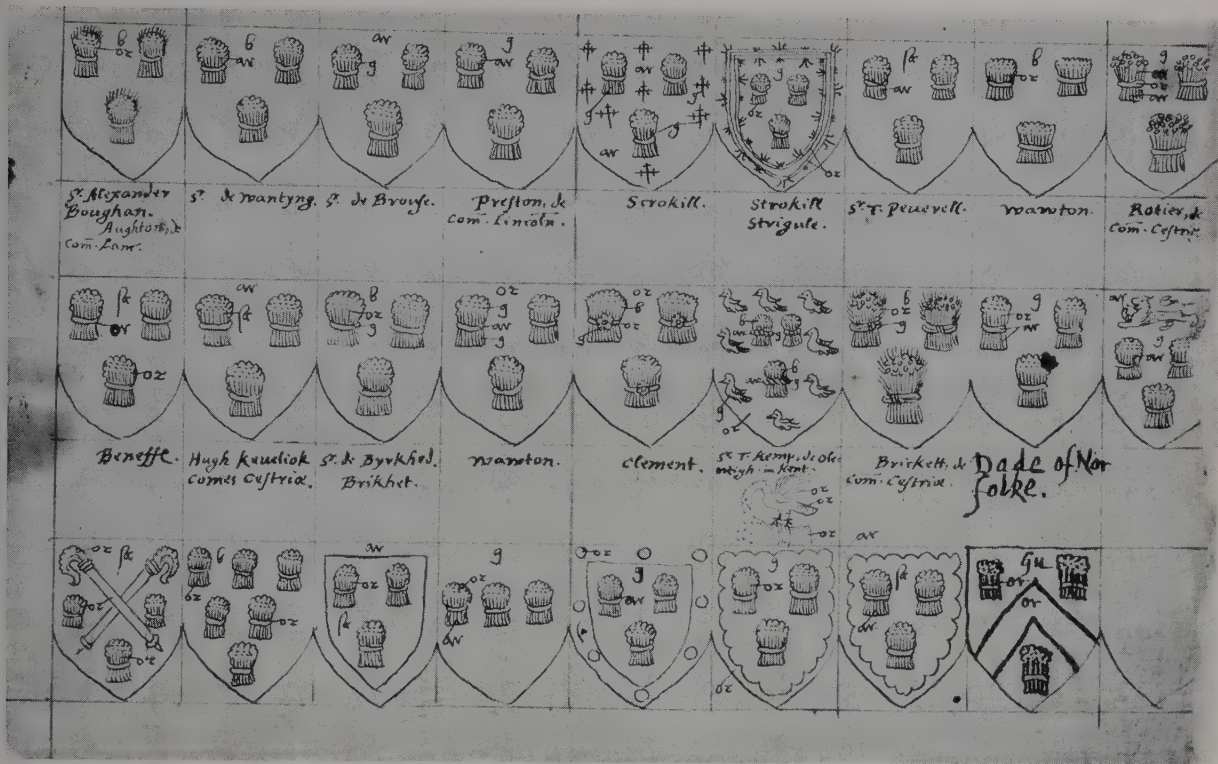 b or
b ar
ar g
g ar
ar g g ar
g or or
sa ar
b or
g ar or ar
Sr. Alexander
Boughan.
Aughton, de
Com. Lanc.
Sr. de Wantyng.
Sr. de Brouse.
Preston, de
Com. Lincoln.
Scrokill.
Strokill
Strigule.
Sr. T. Peuerell.
Wawton.
Rotier, de
Com. Cestriæ.
sa ar or
ar sa
b or g
or g ar g
or b or g
b g g or
b or g
g or ar
ar g ar
Beneffe.
Hugh Keueliok
Comes Cestriæ.
Sr. de Byrkhed.
Brikhet.
Wawton.
Clement.
Sr. T. Kemp, de Ole-
ntigh in Kent.
Brickett, de
Com. Cestriæ
Dade of Nor
folke.
or or or
ar
or sa or or
b or or
ar or sa
g or ar
or g ar
g or or
sa ar
Gu or or